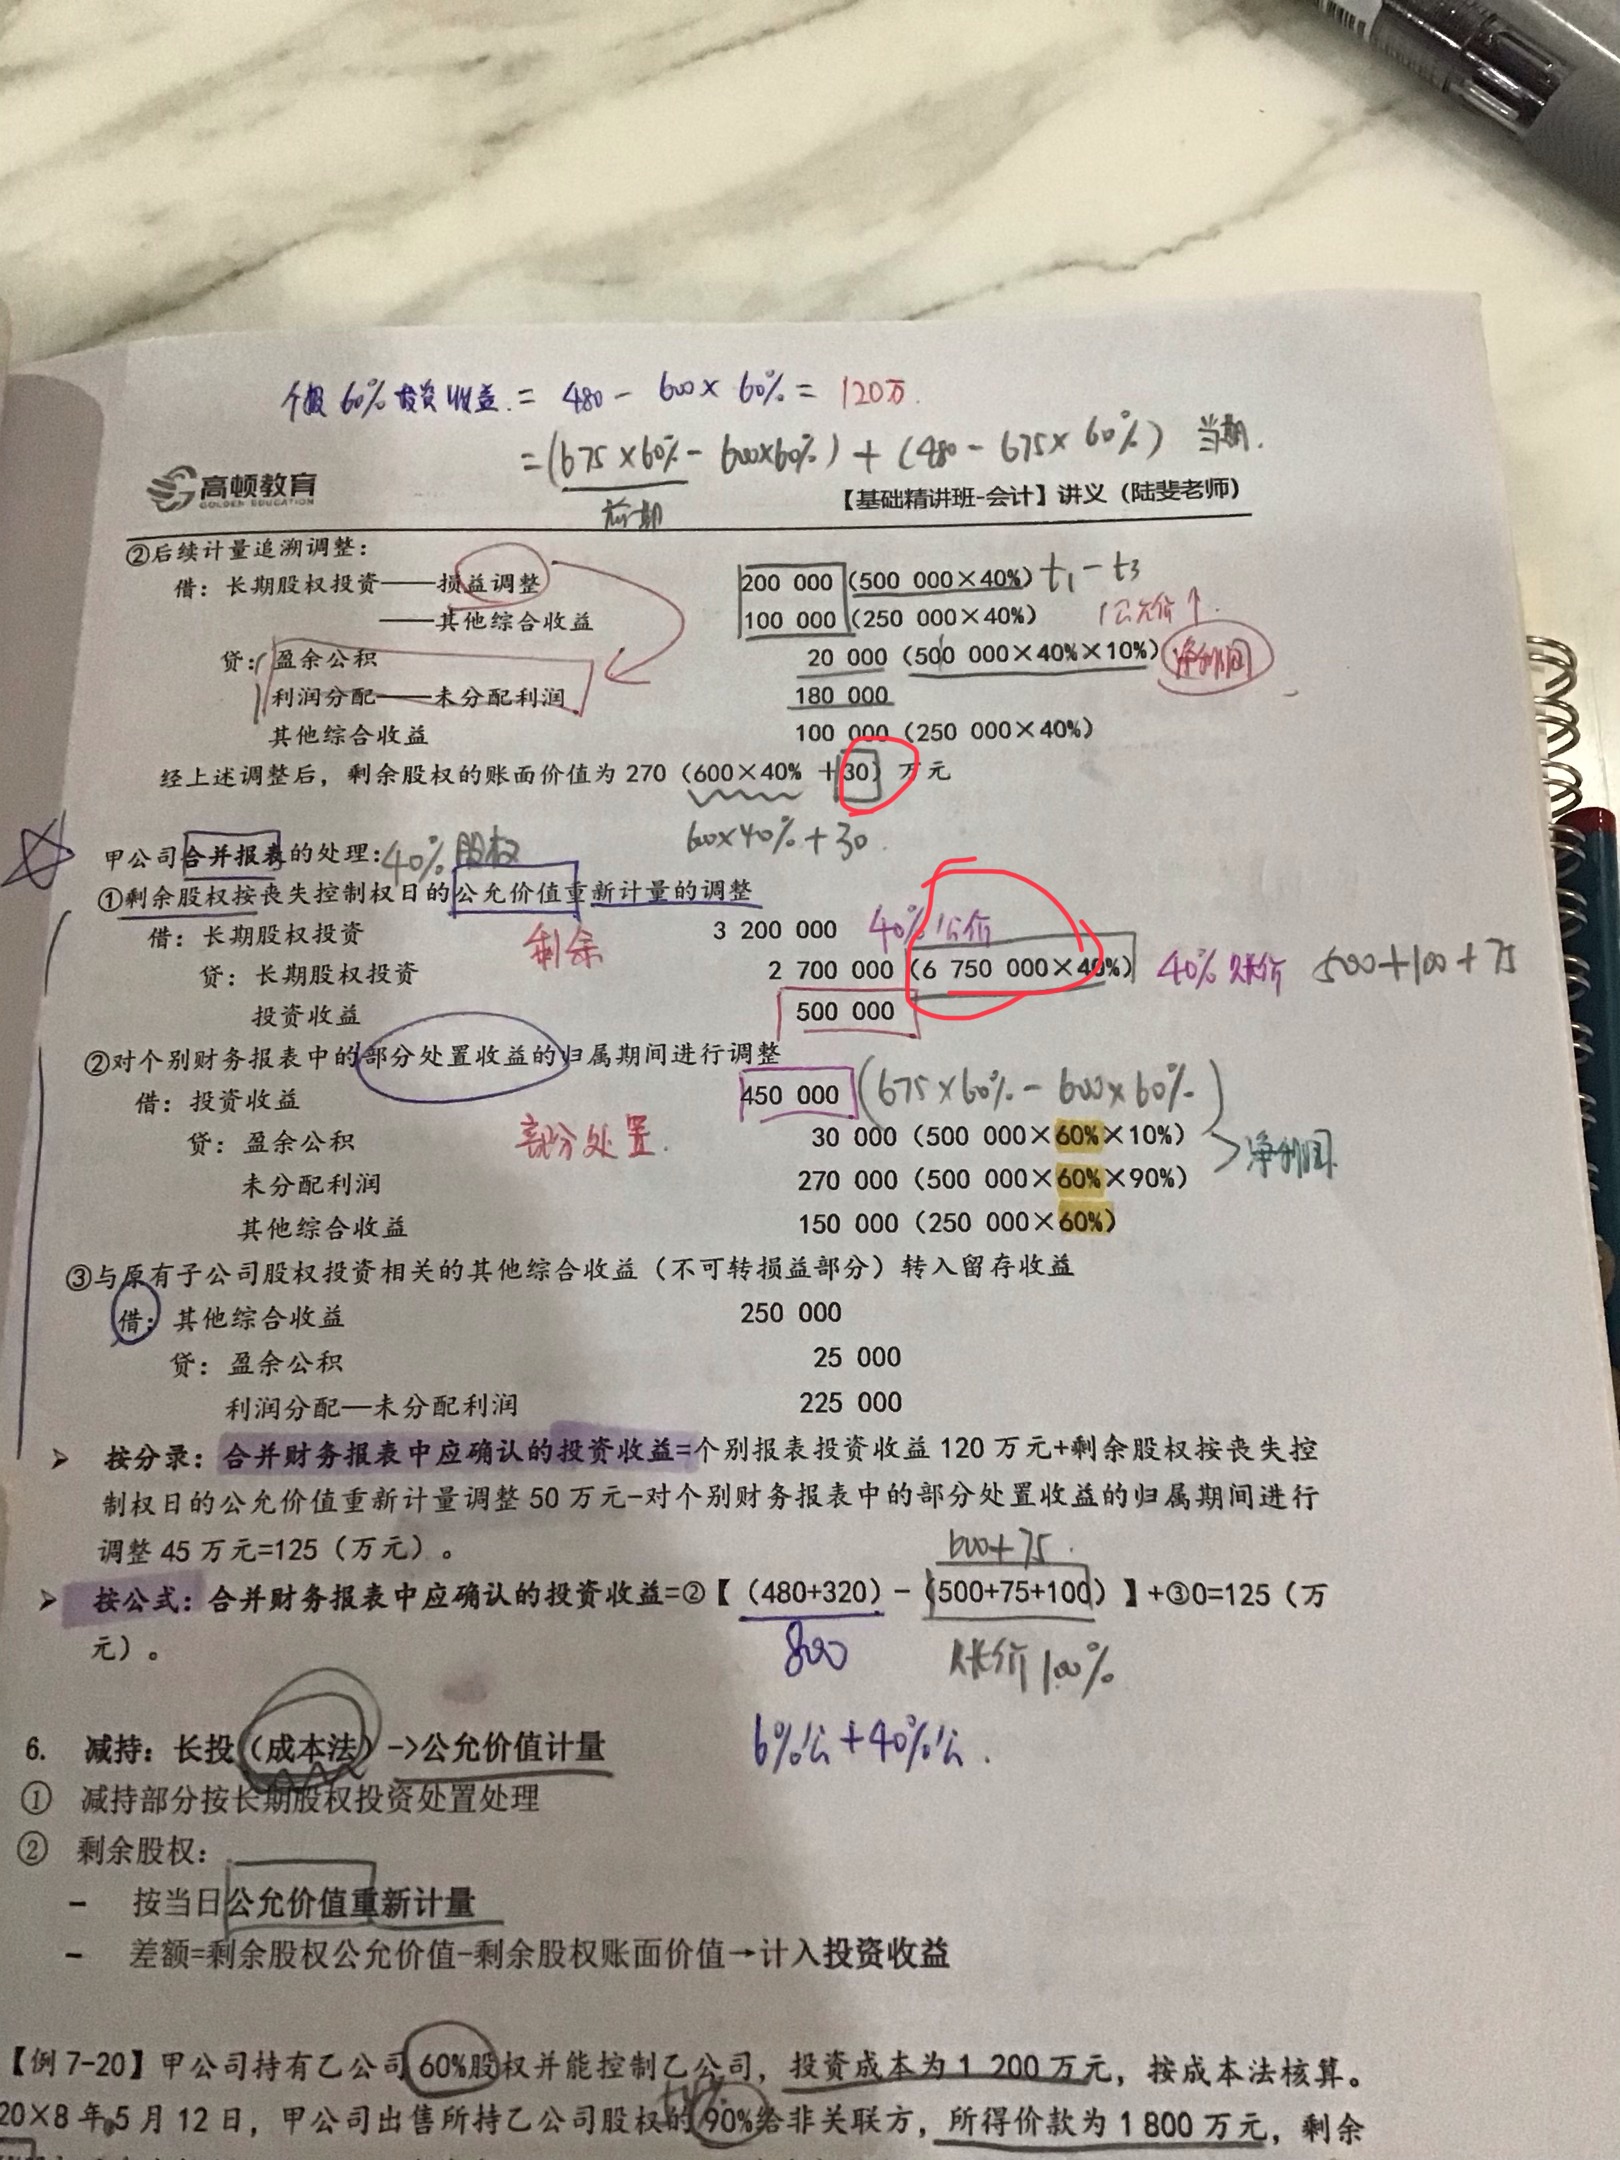 个报 60% 投资收益. = 480 - 600 × 60% = 120万.
= (675 × 60% - 600×60%) + (480 - 675 × 60%) 当期.
前期
高顿教育
GOLDEN EDUCATION
【基础精讲班-会计】讲义（陆斐老师）
②后续计量追溯调整：
借：长期股权投资——损益调整 200 000（500 000×40%） t₁ - t₃
——其他综合收益 100 000（250 000×40%） 公允价↑.
贷：盈余公积 20 000（500 000×40%×10%） 净利润
利润分配——未分配利润 180 000
其他综合收益 100 000（250 000×40%）
经上述调整后，剩余股权的账面价值为 270（600×40% +30）万元
600×40% + 30.
甲公司合并报表的处理： 40% 股权
①剩余股权按丧失控制权日的公允价值重新计量的调整
借：长期股权投资 剩余 3 200 000 40% 公价
贷：长期股权投资 2 700 000（6 750 000×40%） 40% 账价 500+100+75
投资收益 500 000
②对个别财务报表中的部分处置收益的归属期间进行调整
借：投资收益 450 000 (675×60% - 600×60%)
贷：盈余公积 部分处置. 30 000（500 000×60%×10%） 净利润
未分配利润 270 000（500 000×60%×90%）
其他综合收益 150 000（250 000×60%）
③与原有子公司股权投资相关的其他综合收益（不可转损益部分）转入留存收益
借：其他综合收益 250 000
贷：盈余公积 25 000
利润分配—未分配利润 225 000
➢ 按分录：合并财务报表中应确认的投资收益=个别报表投资收益 120 万元+剩余股权按丧失控
制权日的公允价值重新计量调整 50 万元-对个别财务报表中的部分处置收益的归属期间进行
调整 45 万元=125（万元）。
600+75.
➢ 按公式：合并财务报表中应确认的投资收益=②【（480+320）-（500+75+100）】+③0=125（万
元）。
800 账价 100%
6%公 + 40%公.
6. 减持：长投（成本法）->公允价值计量
① 减持部分按长期股权投资处置处理
② 剩余股权：
- 按当日公允价值重新计量
- 差额=剩余股权公允价值-剩余股权账面价值→计入投资收益
【例 7-20】甲公司持有乙公司 60%股权并能控制乙公司，投资成本为 1 200 万元，按成本法核算。
20×8 年 5 月 12 日，甲公司出售所持乙公司股权的 90%给非关联方，所得价款为 1 800 万元，剩余